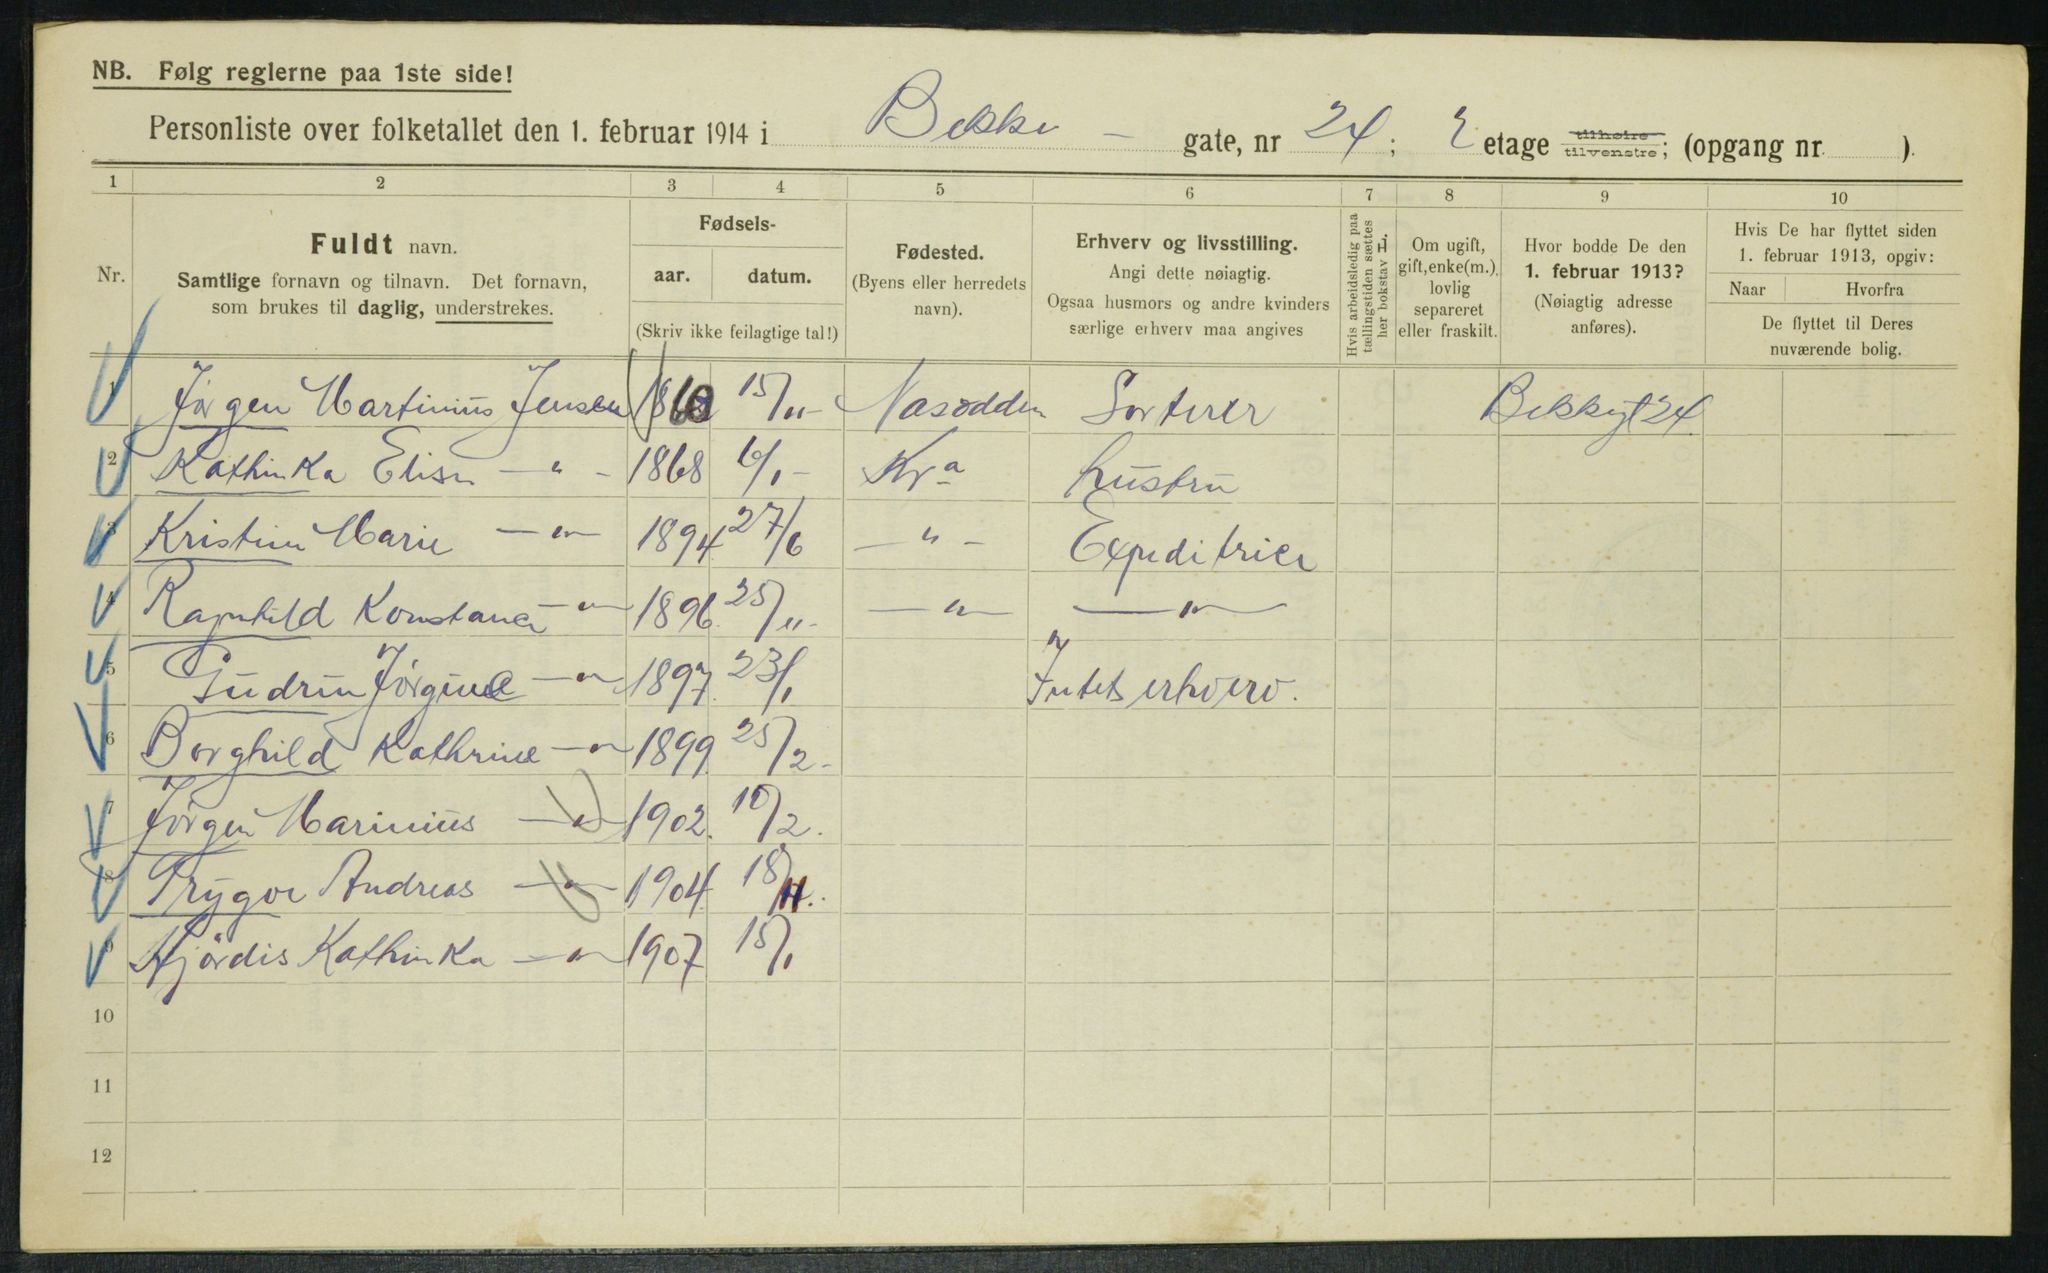 NB. Følg reglerne paa 1ste side!
Personliste over folketallet den 1. februar 1914 i Bekke - gate, nr 24; 2 etage tilhøire tilvenstre; (opgang nr. ).
1 2 3 4 5 6 7 8 9 10
Nr.
Fuldt navn.
Samtlige fornavn og tilnavn. Det fornavn,
som brukes til daglig, understrekes.
Fødsels-
aar. datum.
(Skriv ikke feilagtige tal!)
Fødested.
(Byens eller herredets
navn).
Erhverv og livsstilling.
Angi dette nøiagtig.
Ogsaa husmors og andre kvinders
særlige erhverv maa angives
Hvis arbeidsledig paa
tællingstiden sættes
her bokstav L.
Om ugift,
gift, enke(m.),
lovlig
separeret
eller fraskilt.
Hvor bodde De den
1. februar 1913?
(Nøiagtig adresse
anføres).
Hvis De har flyttet siden
1. februar 1913, opgiv:
Naar Hvorfra
De flyttet til Deres
nuværende bolig.
1 Jørgen Martinius Jensen 1860 15/11- Næsodden Sorterer Bekkegt 24
2 Kathinka Elise - " - 1868 6/1- Kr a hustru
3 Kristine Marie - " - 1894 27/6 - " - Expeditrice
4 Ragnhild Konstance - " - 1896 25/11- - " - - " -
5 Gudrun Jørgine - " - 1897 23/1 Intet erhverv.
6 Borghild Kathrine - " - 1899 25/2-
7 Jørgen Marinius - " - 1902. 10/2.
8 Trygve Andreas - " - 1904 18/11.
9 Hjørdis Kathinka - " - 1907 15/1
10
11
12